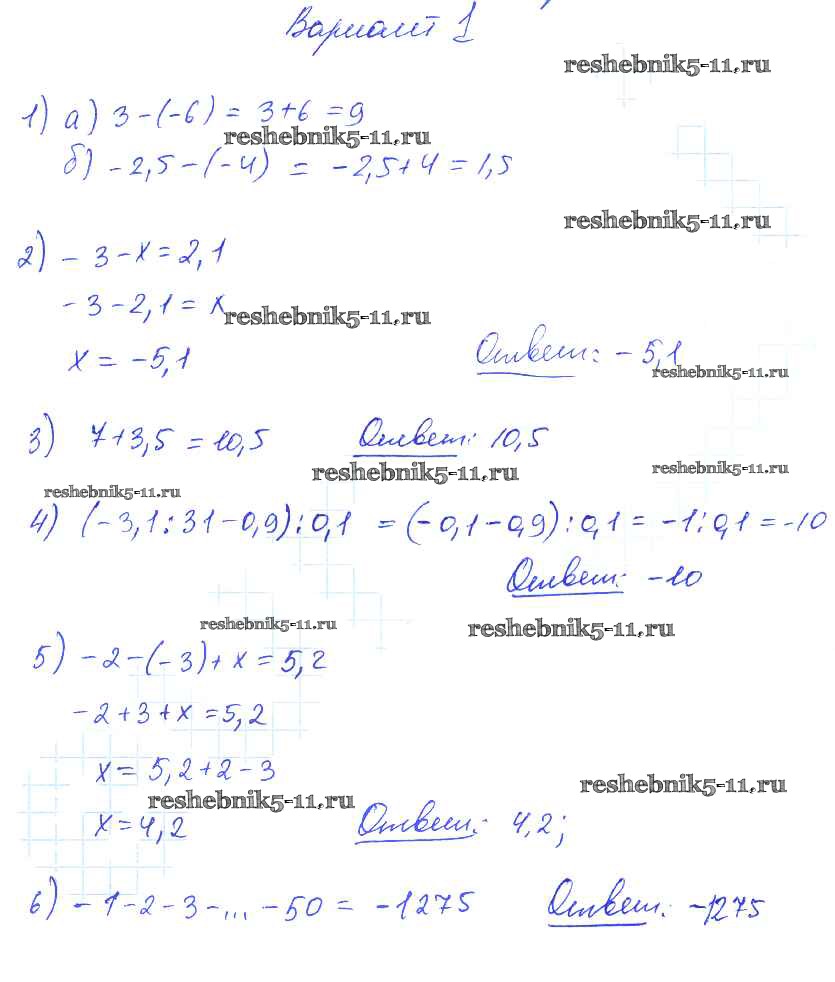 Вариант 1
reshebnik5-11.ru
1) а) 3-(-6) = 3+6 = 9
reshebnik5-11.ru
б) -2,5-(-4) = -2,5+4 = 1,5
reshebnik5-11.ru
2) -3-x=2,1
-3-2,1=x
reshebnik5-11.ru
x = -5,1 Ответ: -5,1
reshebnik5-11.ru
3) 7+3,5 = 10,5 Ответ: 10,5
reshebnik5-11.ru reshebnik5-11.ru
reshebnik5-11.ru
4) (-3,1:31-0,9):0,1 = (-0,1-0,9):0,1 = -1:0,1 = -10
Ответ: -10
reshebnik5-11.ru reshebnik5-11.ru
5) -2-(-3)+x=5,2
-2+3+x=5,2
x= 5,2+2-3
reshebnik5-11.ru reshebnik5-11.ru
x=4,2 Ответ: 4,2;
6) -1-2-3-...-50 = -1275 Ответ: -1275